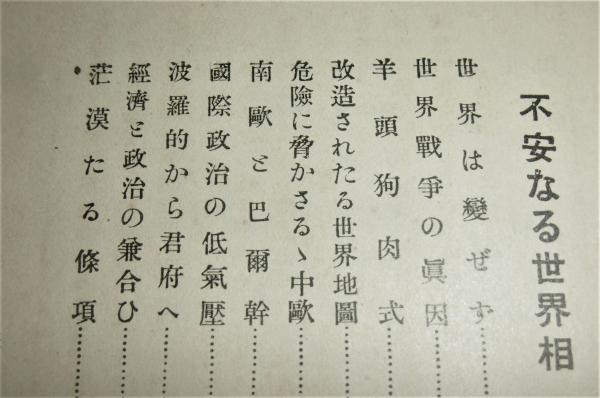 不安なる世界相
世界は變ぜず
世界戰爭の眞因
羊頭狗肉式
改造されたる世界地圖
危險に脅かさるゝ中歐
南歐と巴爾幹
國際政治の低氣壓
波羅的から君府へ
經濟と政治の兼合ひ
茫漠たる條項